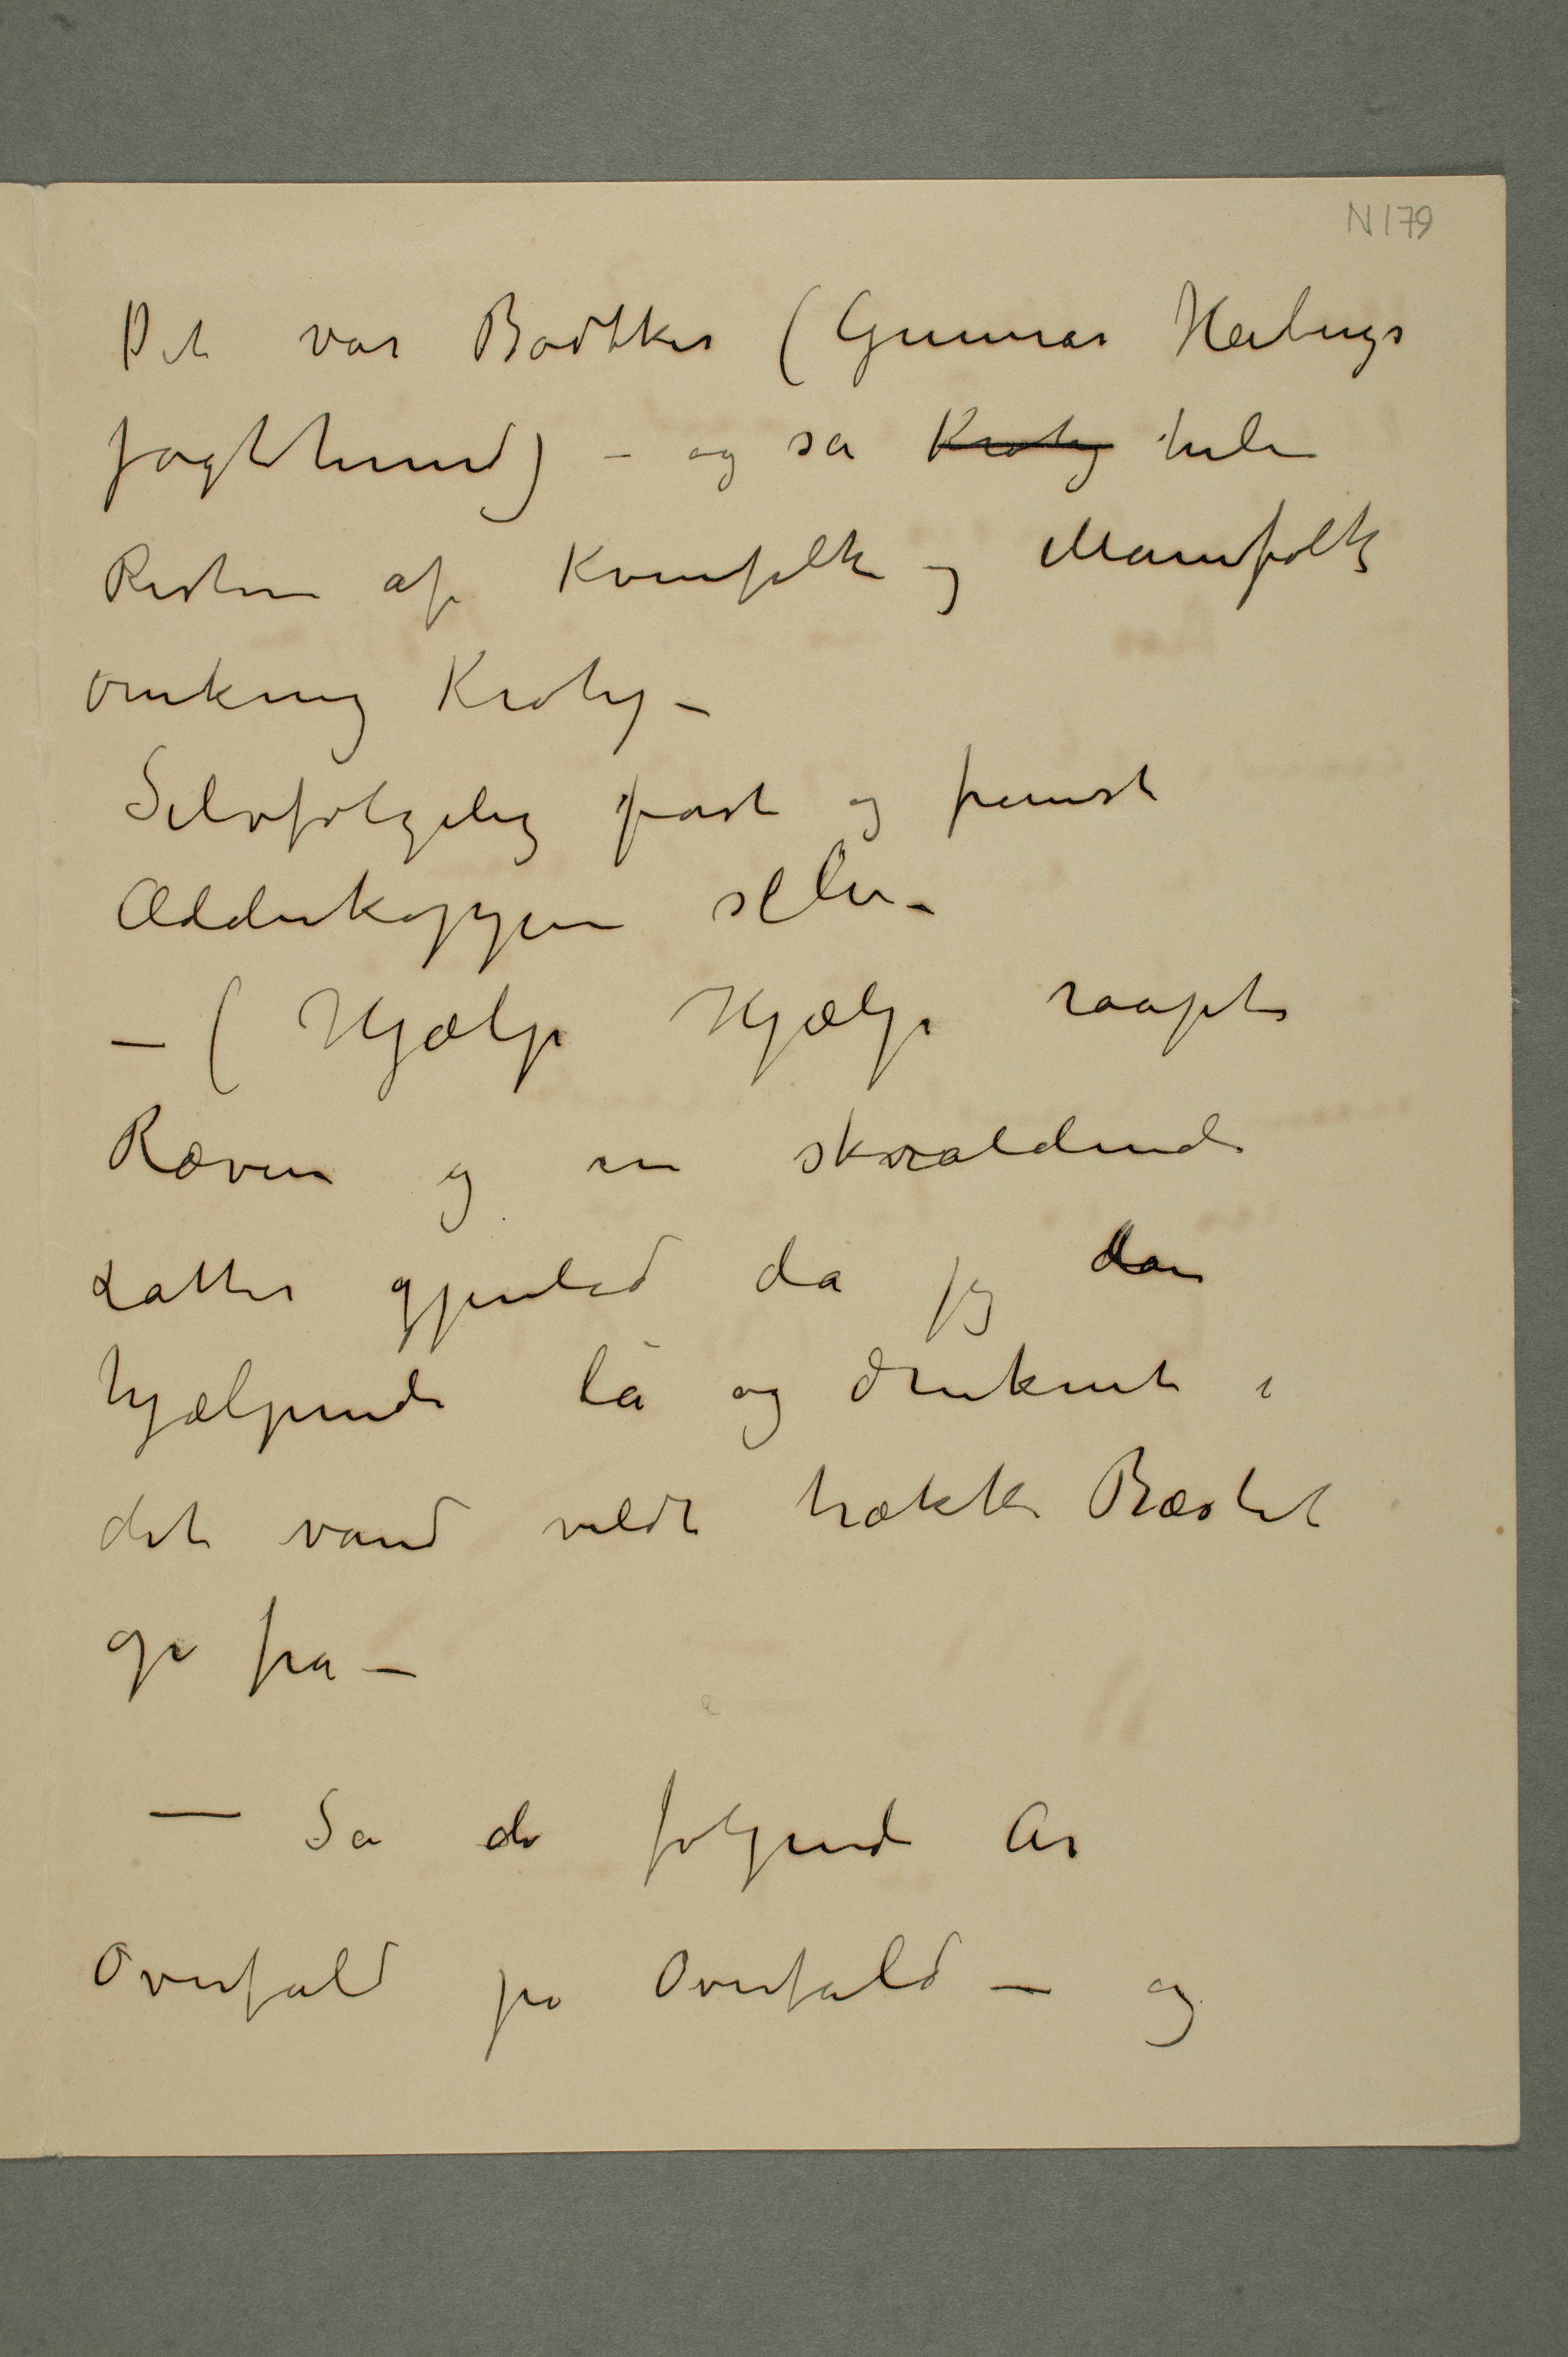 N 179
Det var Bødtker (Gunnar Heibergs
Jagthund) – og så Krohg hele
Resten af Kvinfolk og Mannfolk
omkring Krohg –
Selvfølgelig først og fremst
Ædderkoppen selv –
– ( Hjælp Hjælp raapte
Ræven og en skraldende
Latter gjenlød da jeg den
hjælpende lå og druknet i
det vand vilde trække Bæstet
op fra –
— Så de følgende År
Overfald på Overfald – og